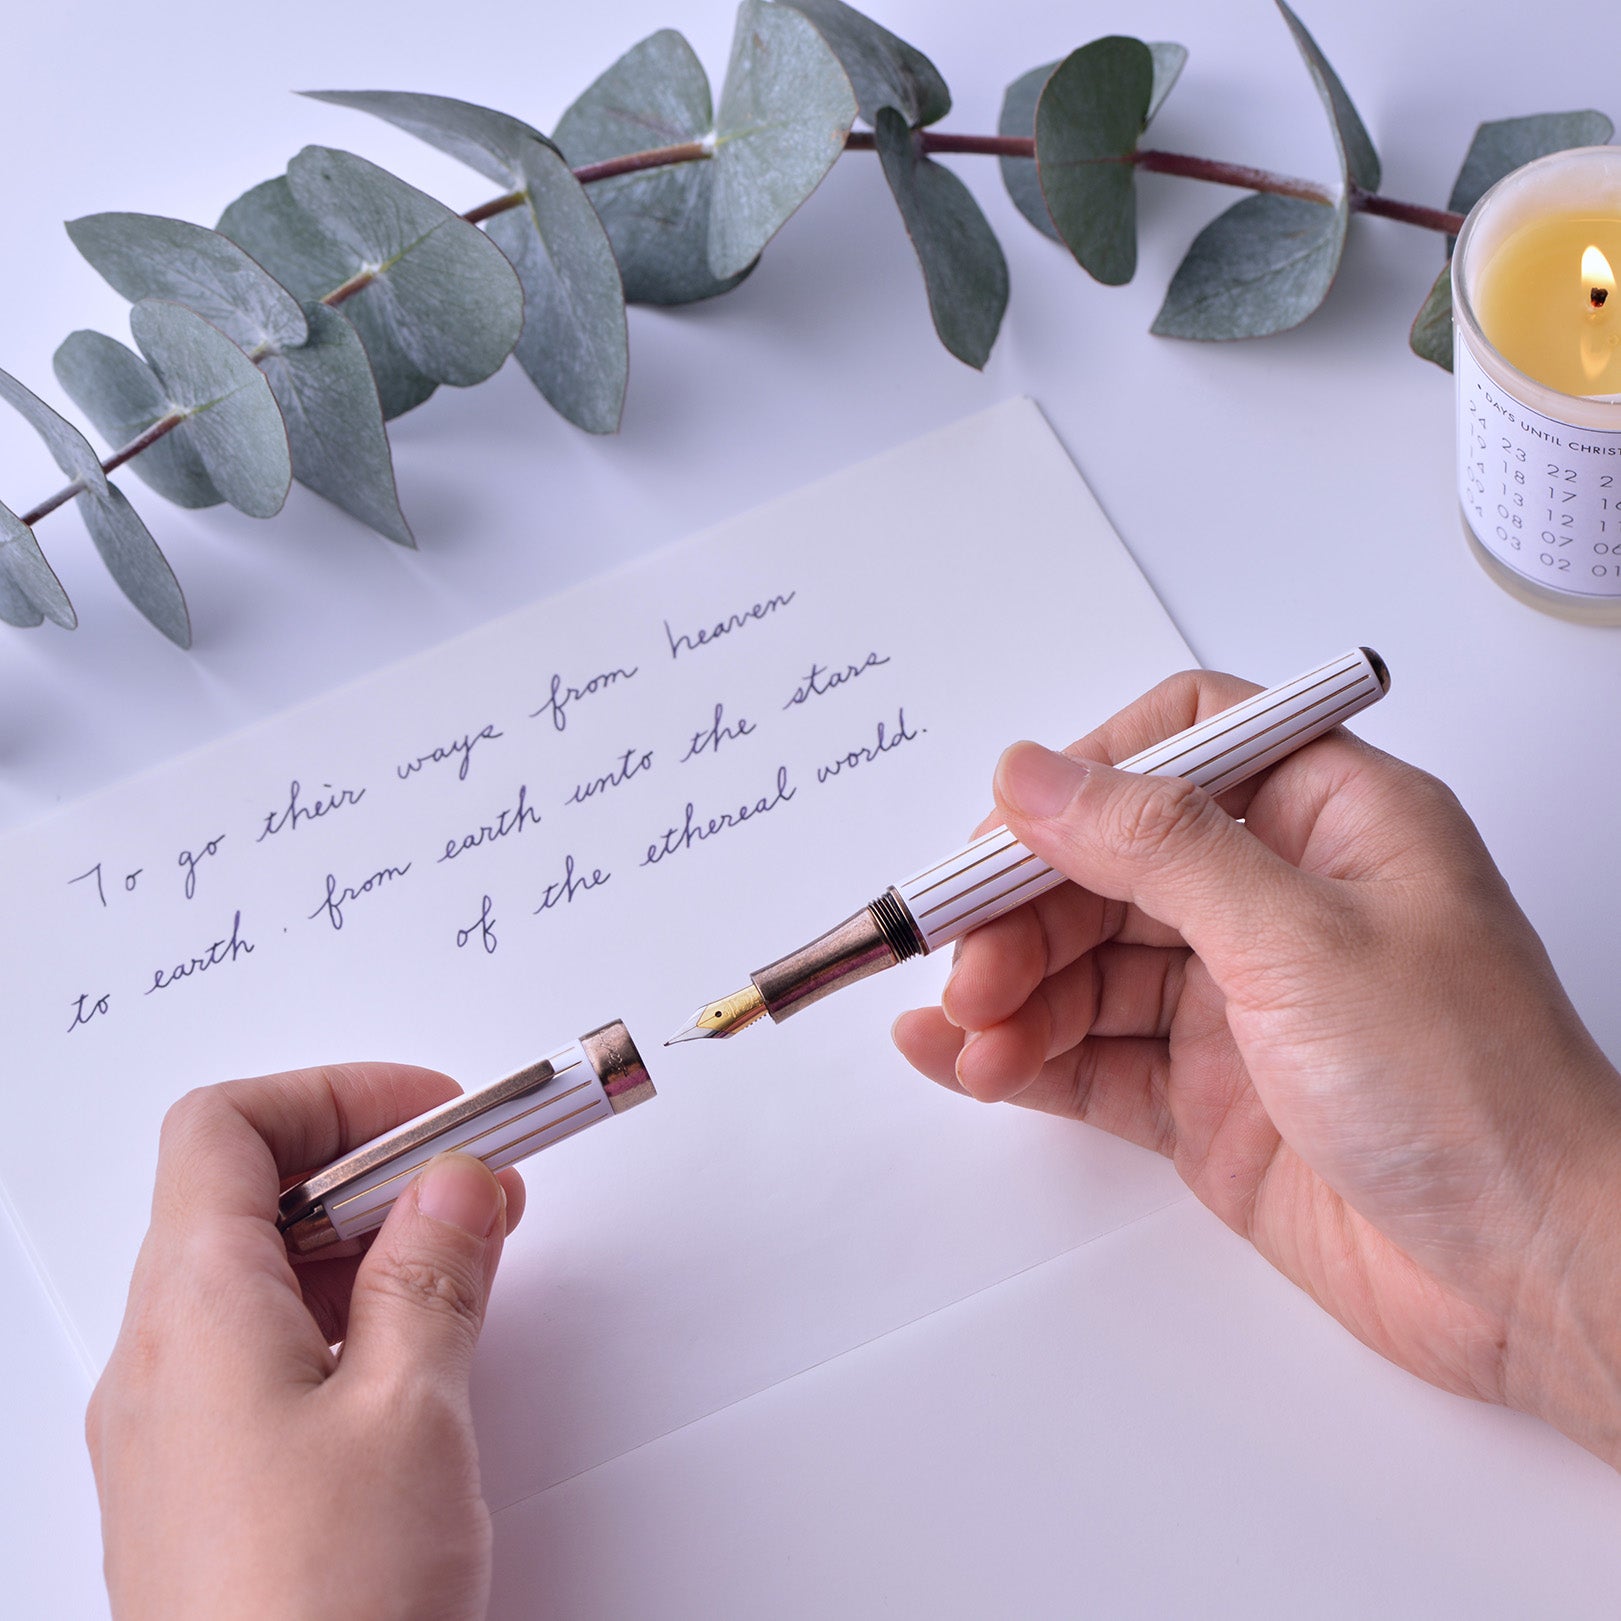 To go their ways from heaven
to earth. from earth unto the stars
of the ethereal world.
• DAYS UNTIL
24 23 22
19 18 17
14 13 12
09 08 07 06
04 03 02 01